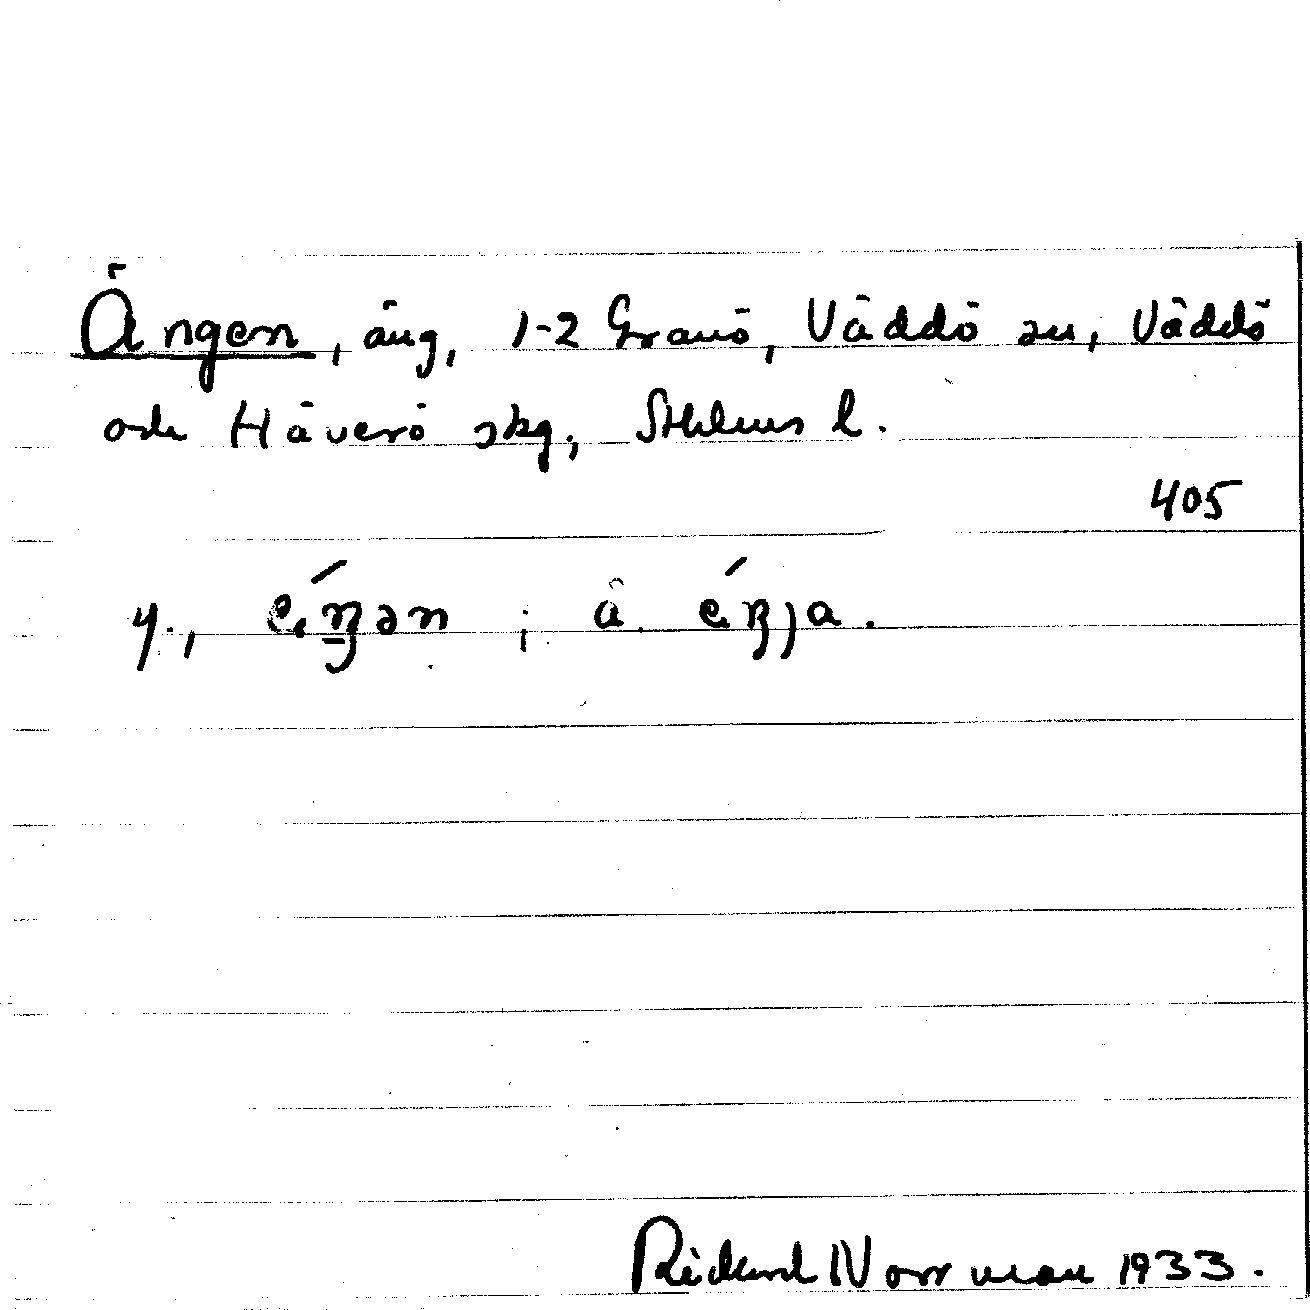 Ängen, äng, 1-2 Granö, Väddö sn, Väddö
och Häverö skg, Sthlms l.
405
y., Rickard Norrman 1933.